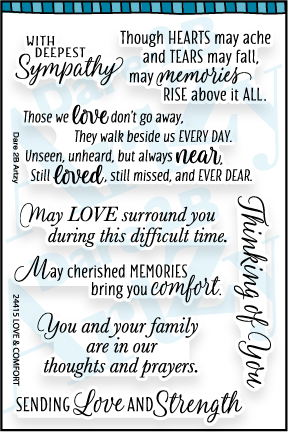 WITH
DEEPEST
Sympathy
Though HEARTS may ache
and TEARS may fall,
may memories
RISE above it ALL.
Those we love don't go away,
They walk beside us EVERY DAY.
Unseen, unheard, but always near,
Still loved, still missed, and EVER DEAR.
Dare 2B Artzy
May LOVE surround you
during this difficult time.
Thinking of You
May cherished MEMORIES
bring you comfort.
24415 LOVE & COMFORT
You and your family
are in our
thoughts and prayers.
SENDING Love AND Strength
Dare 2B
Artzy